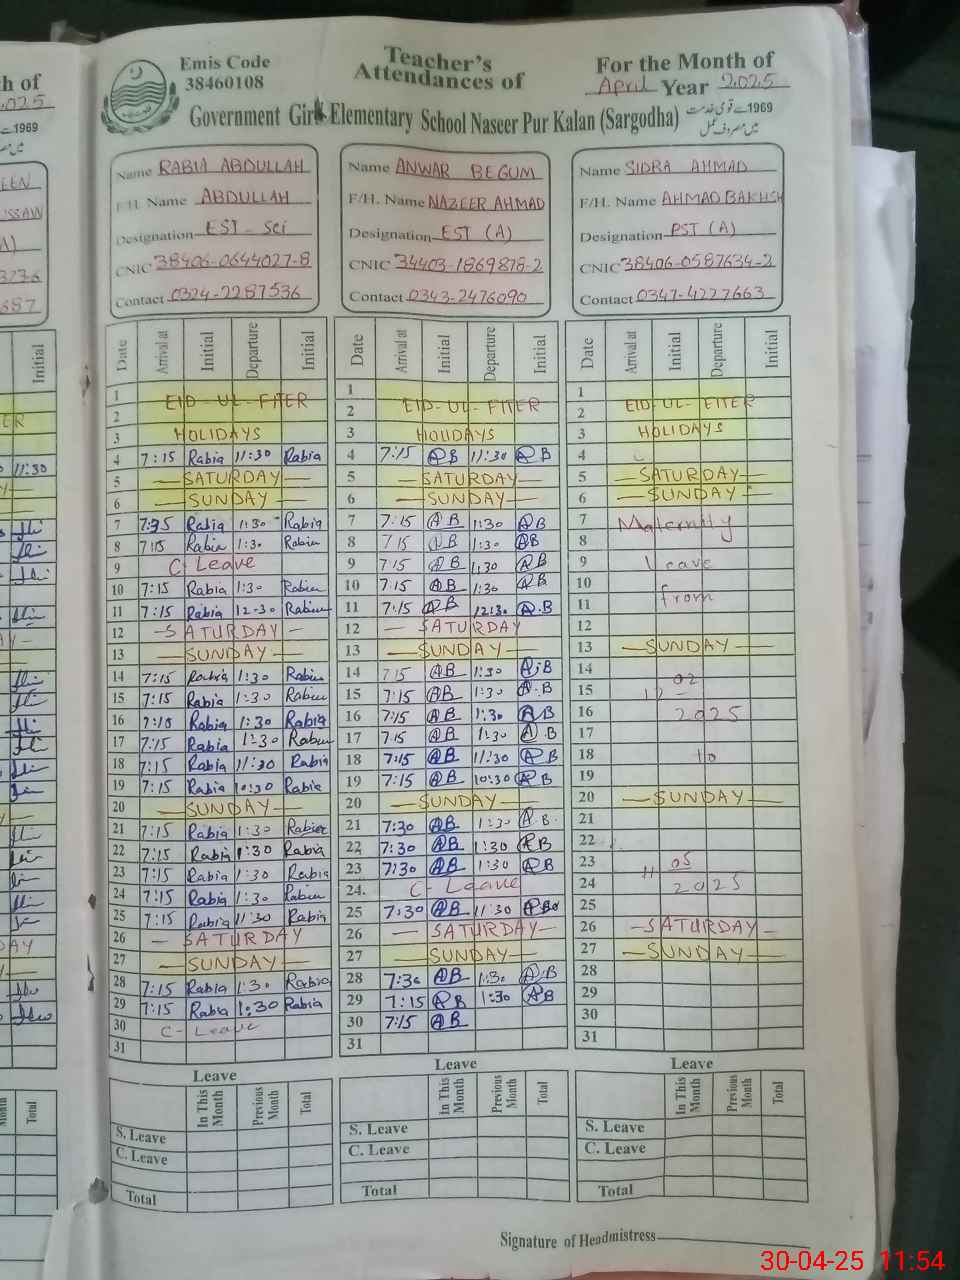 Emis Code
38460108
Teacher's
Attendances of
For the Month of
April Year 2025
Government Girls Elementary School Naseer Pur Kalan (Sargodha)
1969 سے قومی خدمت
میں مصروف عمل
h of
2025
1969
EEN
USSAW
A)
3276
687
Initial
11:30
Name RABIA ABDULLAH
F/H. Name ABDULLAH
Designation EST - Sci
CNIC 38406-0644027-8
Contact 0324-2287536
Name ANWAR BEGUM
F/H. Name NAZEER AHMAD
Designation EST (A)
CNIC 34403-1869878-2
Contact 0343-2476090
Name SIDRA AHMAD
F/H. Name AHMAD BAKHSH
Designation PST (A)
CNIC 38406-0587634-2
Contact 0347-4227663
Date Arrival at Initial Departure Initial
1
2 EID-UL-FITER
3 HOLIDAYS
4 7:15 Rabia 11:30 Rabia
5 —SATURDAY—
6 —SUNDAY—
7 Rabia 1:30 Rabia
8 7:15 Rabia 1:30 Rabia
9 C Leave
10 7:15 Rabia 1:30 Rabia
11 7:15 Rabia 12-30 Rabia
12 —SATURDAY—
13 —SUNDAY—
14 7:15 Rabia 1:30 Rabia
15 7:15 Rabia 1:30 Rabia
16 Rabia 1:30 Rabia
17 7:15 Rabia 1:30 Rabia
18 7:15 Rabia 11:30 Rabia
19 7:15 Rabia 10:30 Rabia
20 —SUNDAY—
21 7:15 Rabia 1:30 Rabia
22 7:15 Rabia 1:30 Rabia
23 7:15 Rabia 1:30 Rabia
24 7:15 Rabia 1:30 Rabia
25 7:15 Rabia 11:30 Rabia
26 — SATURDAY
27 —SUNDAY—
28 7:15 Rabia 1:30 Rabia
29 7:15 Rabia 1:30 Rabia
30 C-Leave
31
Date Arrival at Initial Departure Initial
1
2 EID-UL-FITER
3 HOLIDAYS
4 7:15 AB 11:30 AB
5 —SATURDAY—
6 —SUNDAY—
7 7:15 AB 1:30 AB
8 7 15 AB 1:30 AB
9 7:15 AB 1:30 AB
10 7:15 AB 1:30 AB
11 7:15 AB 12:30 A.B
12 — SATURDAY
13 —SUNDAY—
14 7 15 AB 1:30 A.B
15 7:15 AB 1:30 A.B
16 7:15 AB 1:30 AB
17 7:15 AB 1:30 A B
18 7:15 AB 11:30 AB
19 7:15 AB 10:30 AB
20 —SUNDAY—
21 7:30 AB 1:30 A B.
22 7:30 AB 1:30 AB
23 7:30 AB 1:30 AB
24. C- Leave
25 7:30 AB 11:30 AB
26 — SATURDAY—
27 —SUNDAY—
28 7:30 AB 1:30 A.B
29 7:15 AB 1:30 AB
30 7:15 AB
31
Date Arrival at Initial Departure Initial
1
2 EID-UL-FITER
3 HOLIDAYS
4
5 —SATURDAY—
6 —SUNDAY—
7 Maternity
8
9 Leave
10
11 from
12
13 —SUNDAY—
14
15 02
16 2025
17
18 to
19
20 —SUNDAY—
21
22
23 11 05
24 2025
25
26 —SATURDAY—
27 —SUNDAY—
28
29
30
31
Leave
In This Month Previous Month Total
S. Leave
C. Leave
Total
Leave
In This Month Previous Month Total
S. Leave
C. Leave
Total
Leave
In This Month Previous Month Total
S. Leave
C. Leave
Total
Signature of Headmistress
30-04-25 11:54